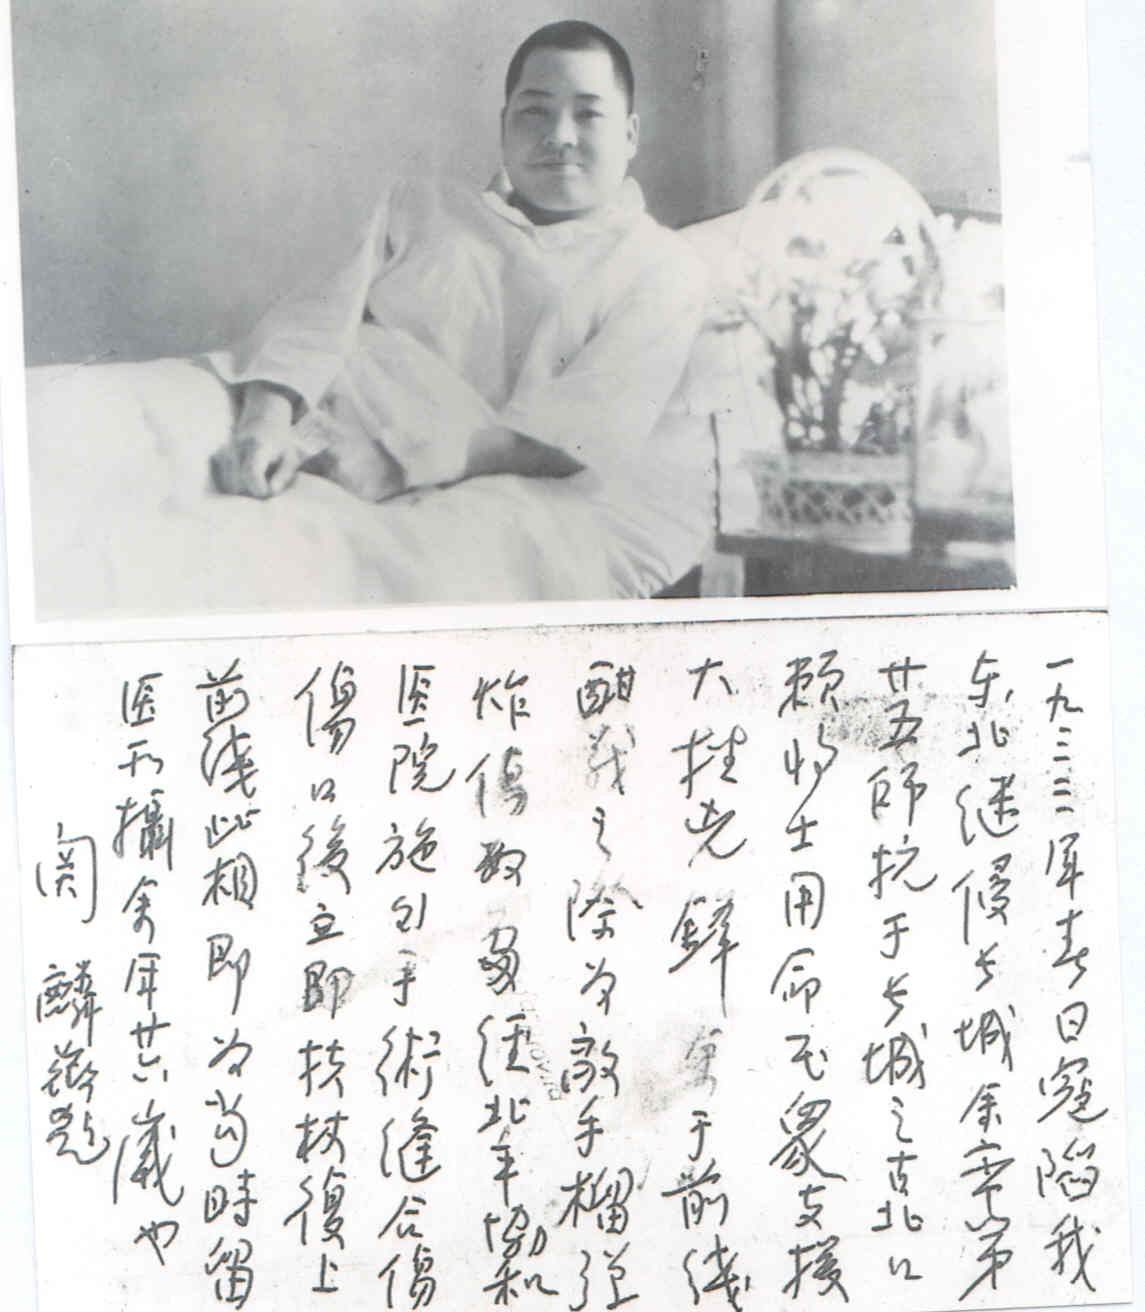 一九三三年春日寇陷我
东北继侵长城余率第
廿五师抗于长城之古北口
赖将士用命民众支援
大挫凶锋 余于前线
酣战之际为敌手榴弹
炸伤数处经北平协和
医院施行手術縫合傷
傷口後立即扶杖復上
前线此相即为当時留
医所攝余年廿六歲也
関麟徵题